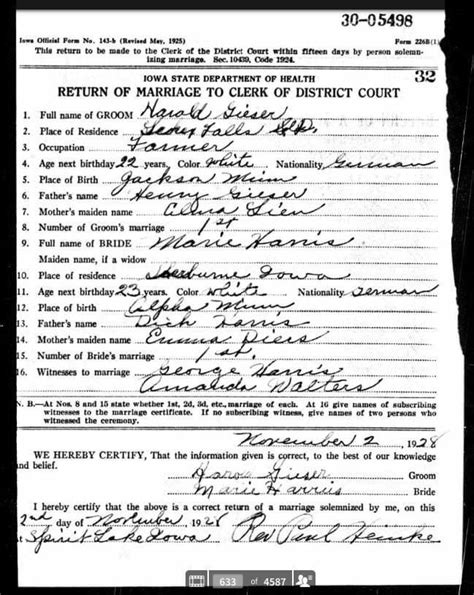 30-05498
Iowa Official Form No. 143-b (Revised May, 1925) Form 226B(1)
This return to be made to the Clerk of the District Court within fifteen days by person solemn-
izing marriage. Sec. 10439, Code 1924.
IOWA STATE DEPARTMENT OF HEALTH 32
RETURN OF MARRIAGE TO CLERK OF DISTRICT COURT
1. Full name of GROOM Harold Gieser
2. Place of Residence Falls
3. Occupation Farmer
4. Age next birthday 22 years, Color White Nationality German
5. Place of Birth Jackson Minn
6. Father's name Henry Gieser
7. Mother's maiden name
8. Number of Groom's marriage 1st
9. Full name of BRIDE Marie Harris
Maiden name, if a widow
10. Place of residence Iowa
11. Age next birthday 23 years, Color White Nationality German
12. Place of birth Alpha Minn
13. Father's name Dick Harris
14. Mother's maiden name Emma
15. Number of Bride's marriage 1st.
16. Witnesses to marriage George Harris
Amanda Walters
N. B.—At Nos. 8 and 15 state whether 1st, 2d, 3d, etc., marriage of each. At 16 give names of subscribing
witnesses to the marriage certificate. If no subscribing witness, give names of two persons who
witnessed the ceremony.
November 2 1928
WE HEREBY CERTIFY, That the information given is correct, to the best of our knowledge
and belief.
Harold Gieser Groom
Marie Harris Bride
I hereby certify that the above is a correct return of a marriage solemnized by me, on this
2nd day of November 1928
at Spirit Lake Iowa Rev Paul
633 of 4587